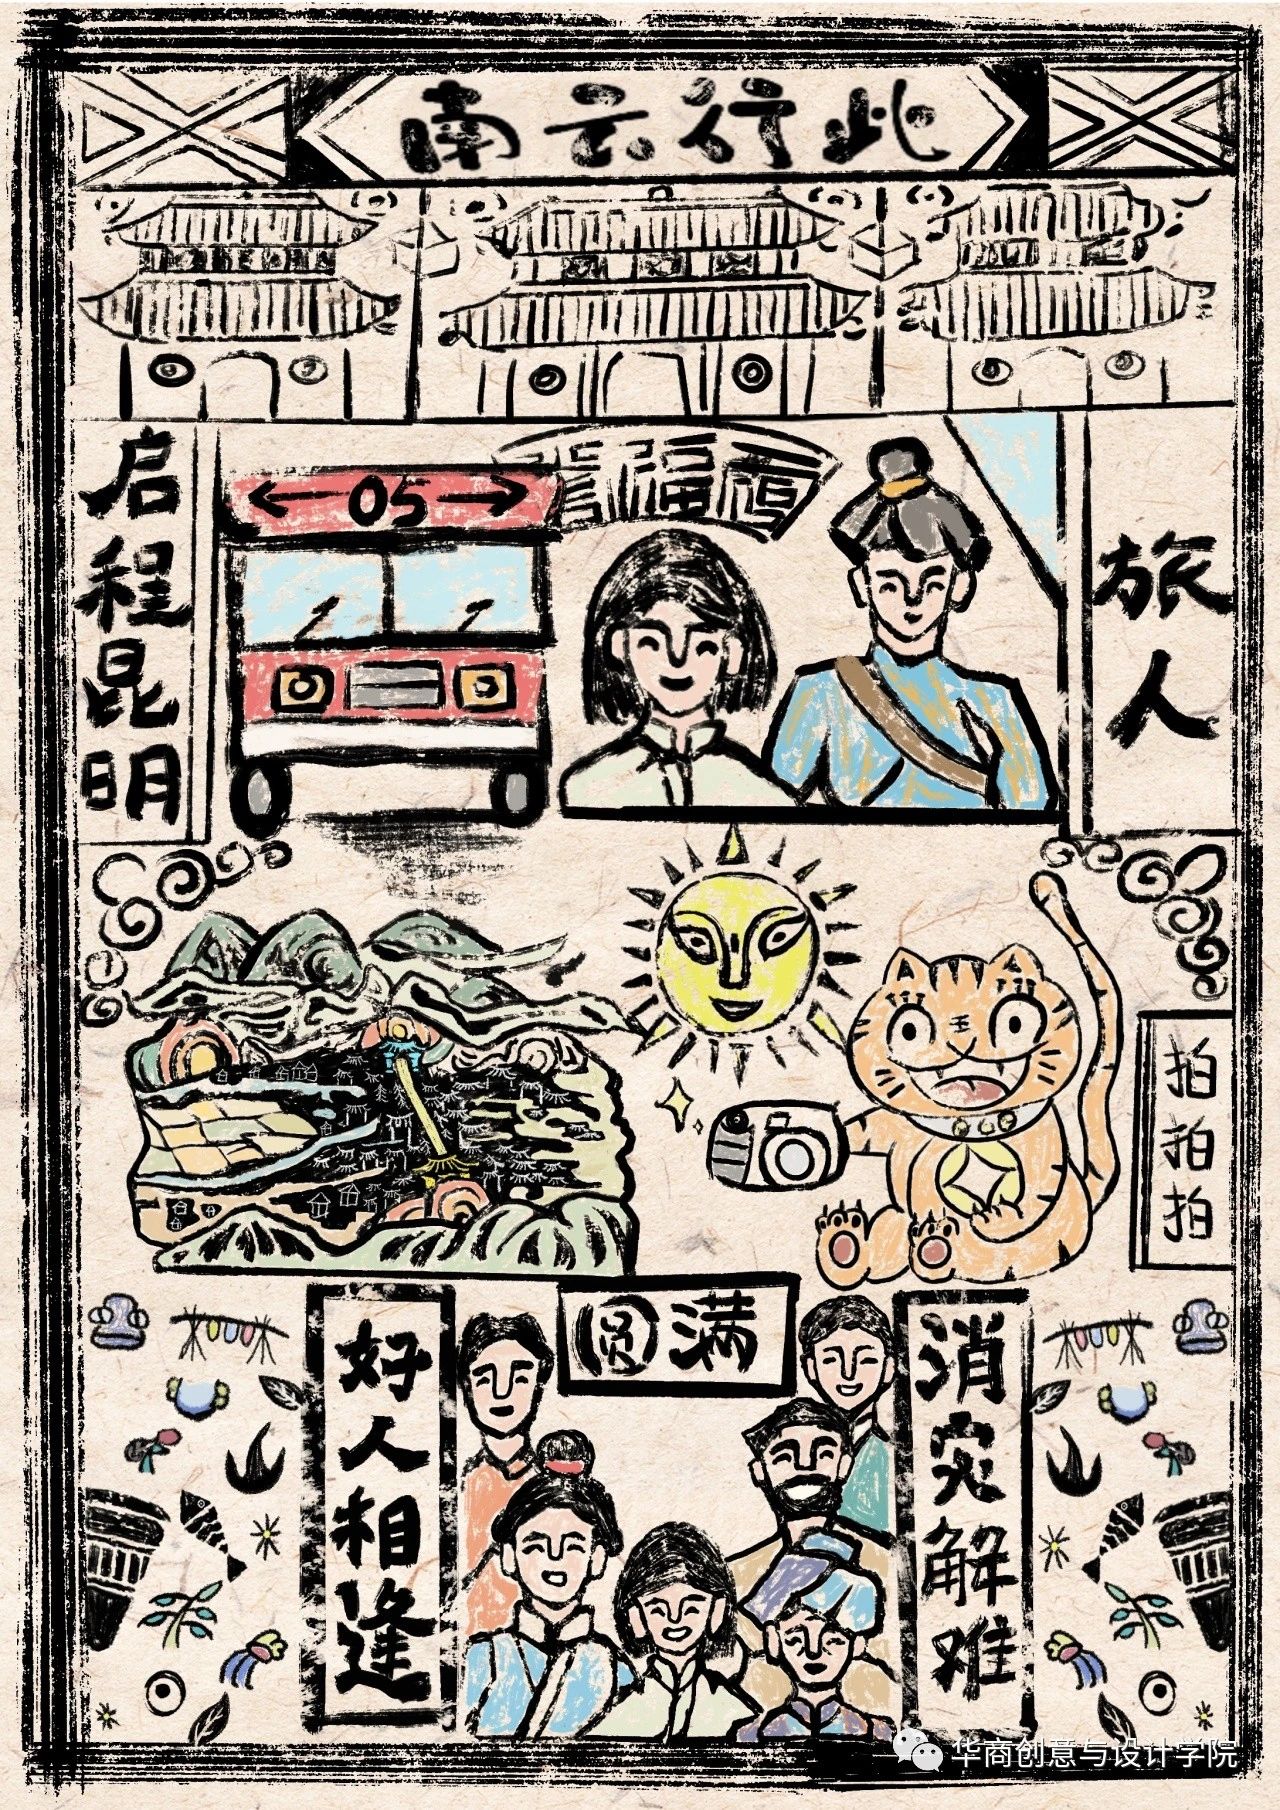 此行云南
启程昆明
05
福
旅人
王
拍拍拍
圆满
好人相逢
消灾解难
华商创意与设计学院